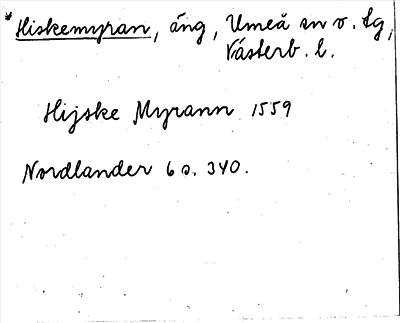 *Hiskemyran, äng, Umeå sn o. tg,
Västerb. l.
Hijske Myrann 1559
Nordlander 6 s. 340.